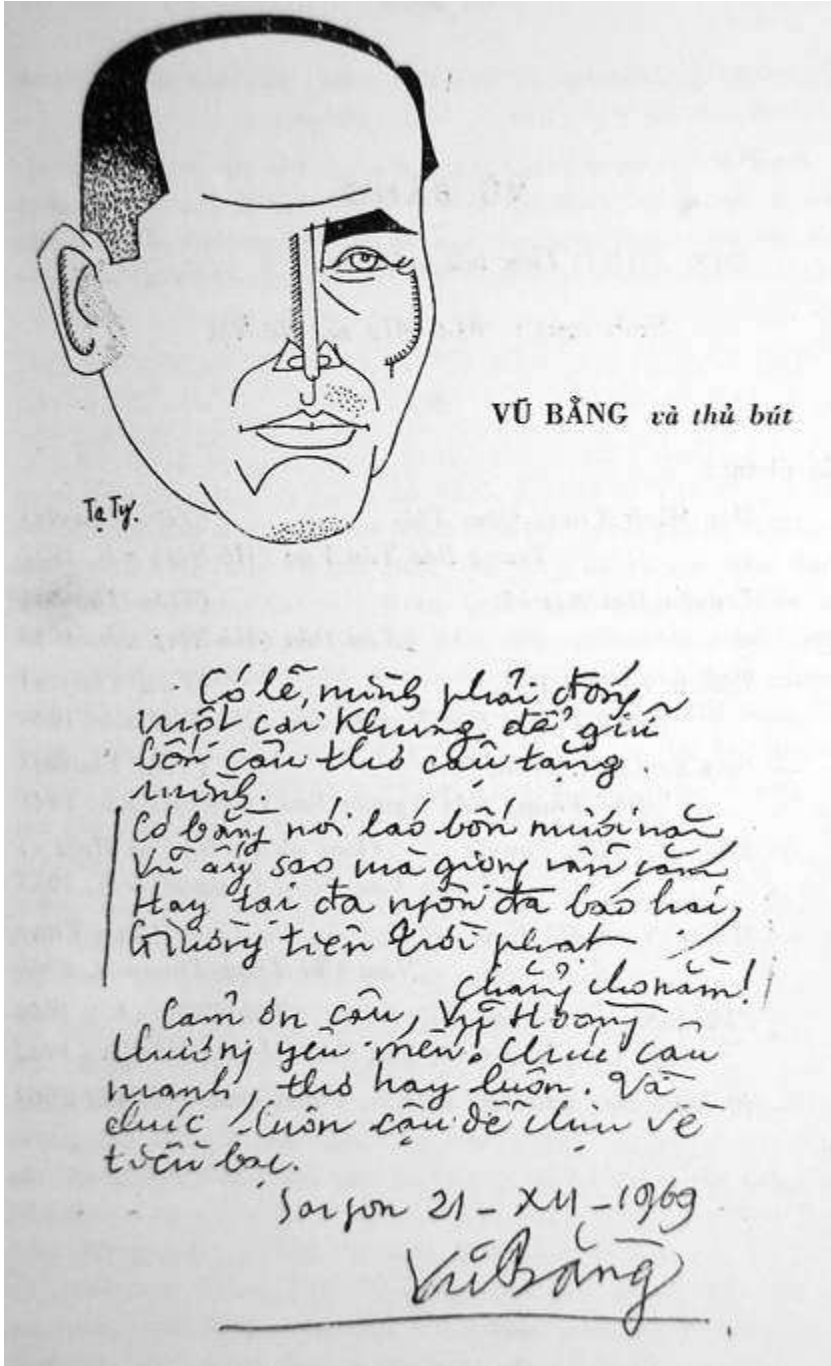 VŨ BẰNG và thủ bút
Tạ Tỵ.
Có lẽ, mình phải đóng
một cái khung để giữ
bốn câu thơ cậu tặng
mình
Có bằng nói láo bốn mươi năm
Vũ ấy sao mà giọng vẫn căm
Hay tại đa ngôn đa báo hại,
Giường tiên trời phạt
chẳng cho nằm!
Cám ơn cậu, Vũ Hoàng
thương yêu mến. Chúc cậu
mạnh, thơ hay luôn. Và
chúc luôn cậu dễ chịu về
tiền bạc.
Saigon 21 - XII - 1969
Vũ Bằng